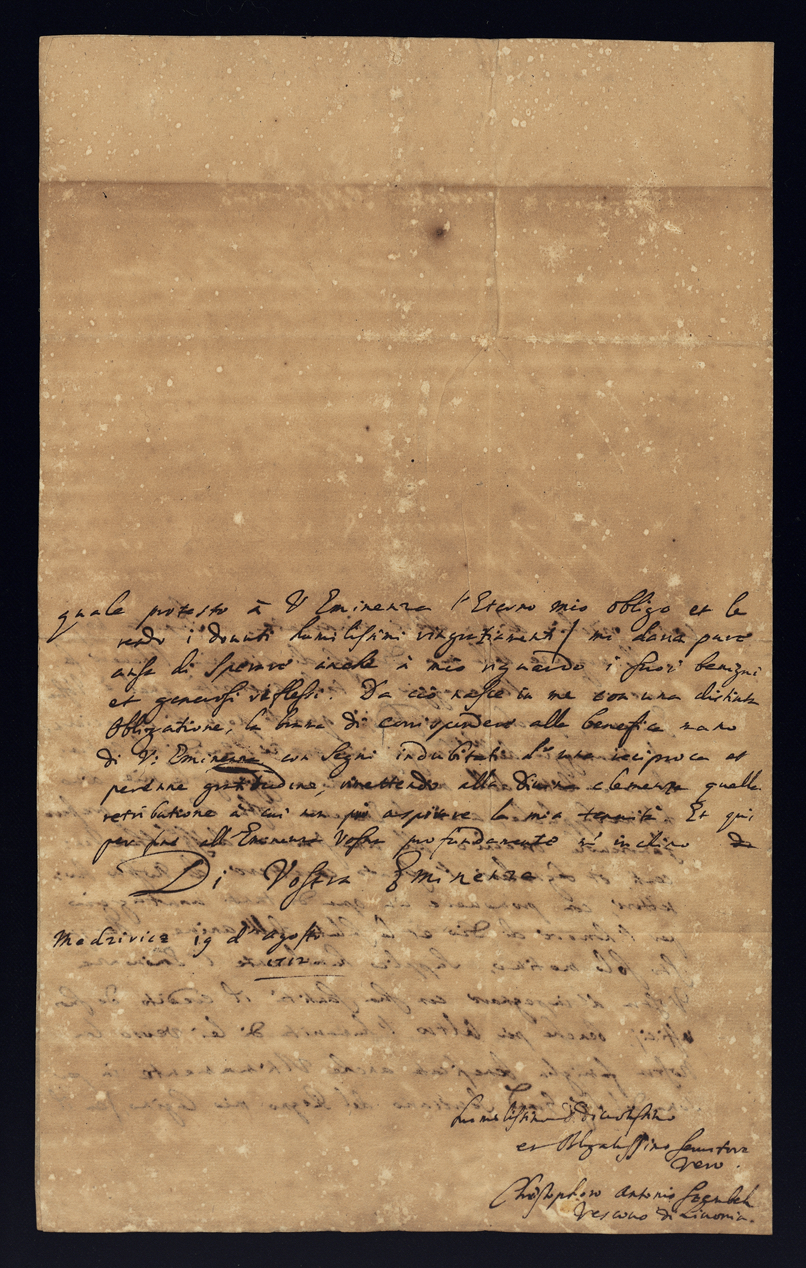 quale protesto à V Eminenza l'Eterno mio obligo et le
rendo i dovuti humilissimi ringratiamenti / mi dava pure
ansa di sperare anche à mio riguardo i suoi benigni
et generosi riflessi. Da ciò nasce in me con una distinta
Obligatione, la brama di corrispondere alla benefica mano
di V. Eminenza con segni indubitati d'una reciproca et
perenne gratitudine, rimettendo alla Divina clemenza quella
retributione à cui non può aspirare la mia tenuità. Et qui
per fine all'Eminenza Vostra profondamente m'inchino
Di Vostra Eminenza
19 d'agosto
1712
humilissimo Divotissimo
et Obligatissimo Servitore
vero.
Christophoro Antonio Szembek
Vescovo di Livonia.